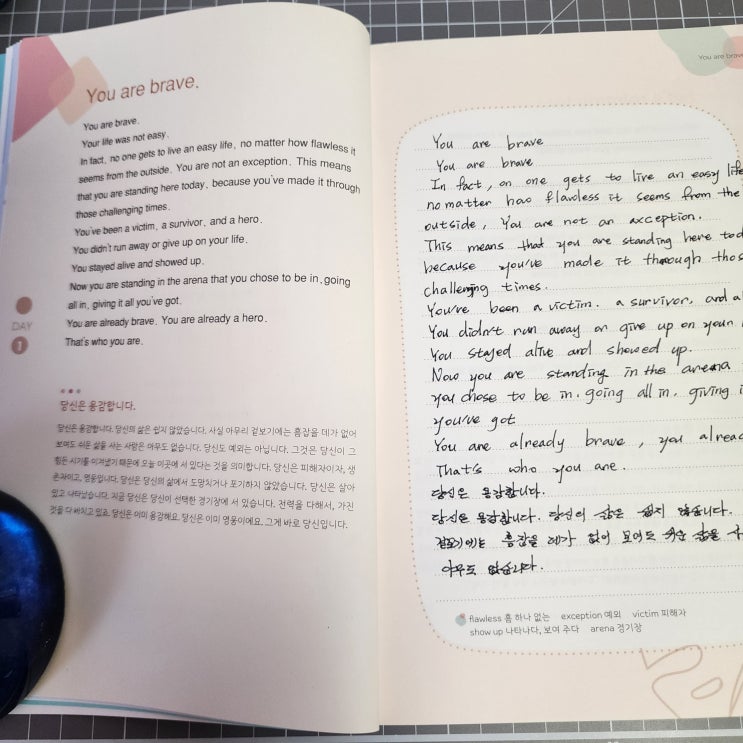 You are brave.
You are brave.
Your life was not easy.
In fact, no one gets to live an easy life, no matter how flawless it
seems from the outside. You are not an exception. This means
that you are standing here today, because you've made it through
those challenging times.
You've been a victim, a survivor, and a hero.
You didn't run away or give up on your life.
You stayed alive and showed up.
Now you are standing in the arena that you chose to be in, going
all in, giving it all you've got.
You are already brave. You are already a hero.
That's who you are.
DAY
1
당신은 용감합니다.
당신은 용감합니다. 당신의 삶은 쉽지 않았습니다. 사실 아무리 겉보기에는 흠잡을 데가 없어
보여도 쉬운 삶을 사는 사람은 아무도 없습니다. 당신도 예외는 아닙니다. 그것은 당신이 그
힘든 시기를 이겨냈기 때문에 오늘 이곳에 서 있다는 것을 의미합니다. 당신은 피해자이자, 생
존자이고, 영웅입니다. 당신은 당신의 삶에서 도망치거나 포기하지 않았습니다. 당신은 살아
있고 나타났습니다. 지금 당신은 당신이 선택한 경기장에 서 있습니다. 전력을 다해서, 가진
것을 다 바치고 있죠. 당신은 이미 용감해요. 당신은 이미 영웅이에요. 그게 바로 당신입니다.
You are brave
You are brave
You are brave
In fact, on one gets to live an easy life
no matter how flawless it seems from the
outside, You are not an exception.
This means that you are standing here
because you've made it through
challenging times.
You've been a victim. a survivor, and
You didn't run away or give up on your
You stayed alive and showed up.
Now you are standing in the arena
you chose to be in. going all in. giving
you've got
You are already brave, you
That's who you are.
당신은 용감합니다.
당신은 용감합니다. 당신의 삶은 쉽지 않습니다.
겉보기에는 흠잡을 데가 없어 보여도 쉬운 삶을
아무도 없습니다.
flawless 흠 하나 없는 exception 예외 victim 피해자
show up 나타나다, 보여 주다 arena 경기장